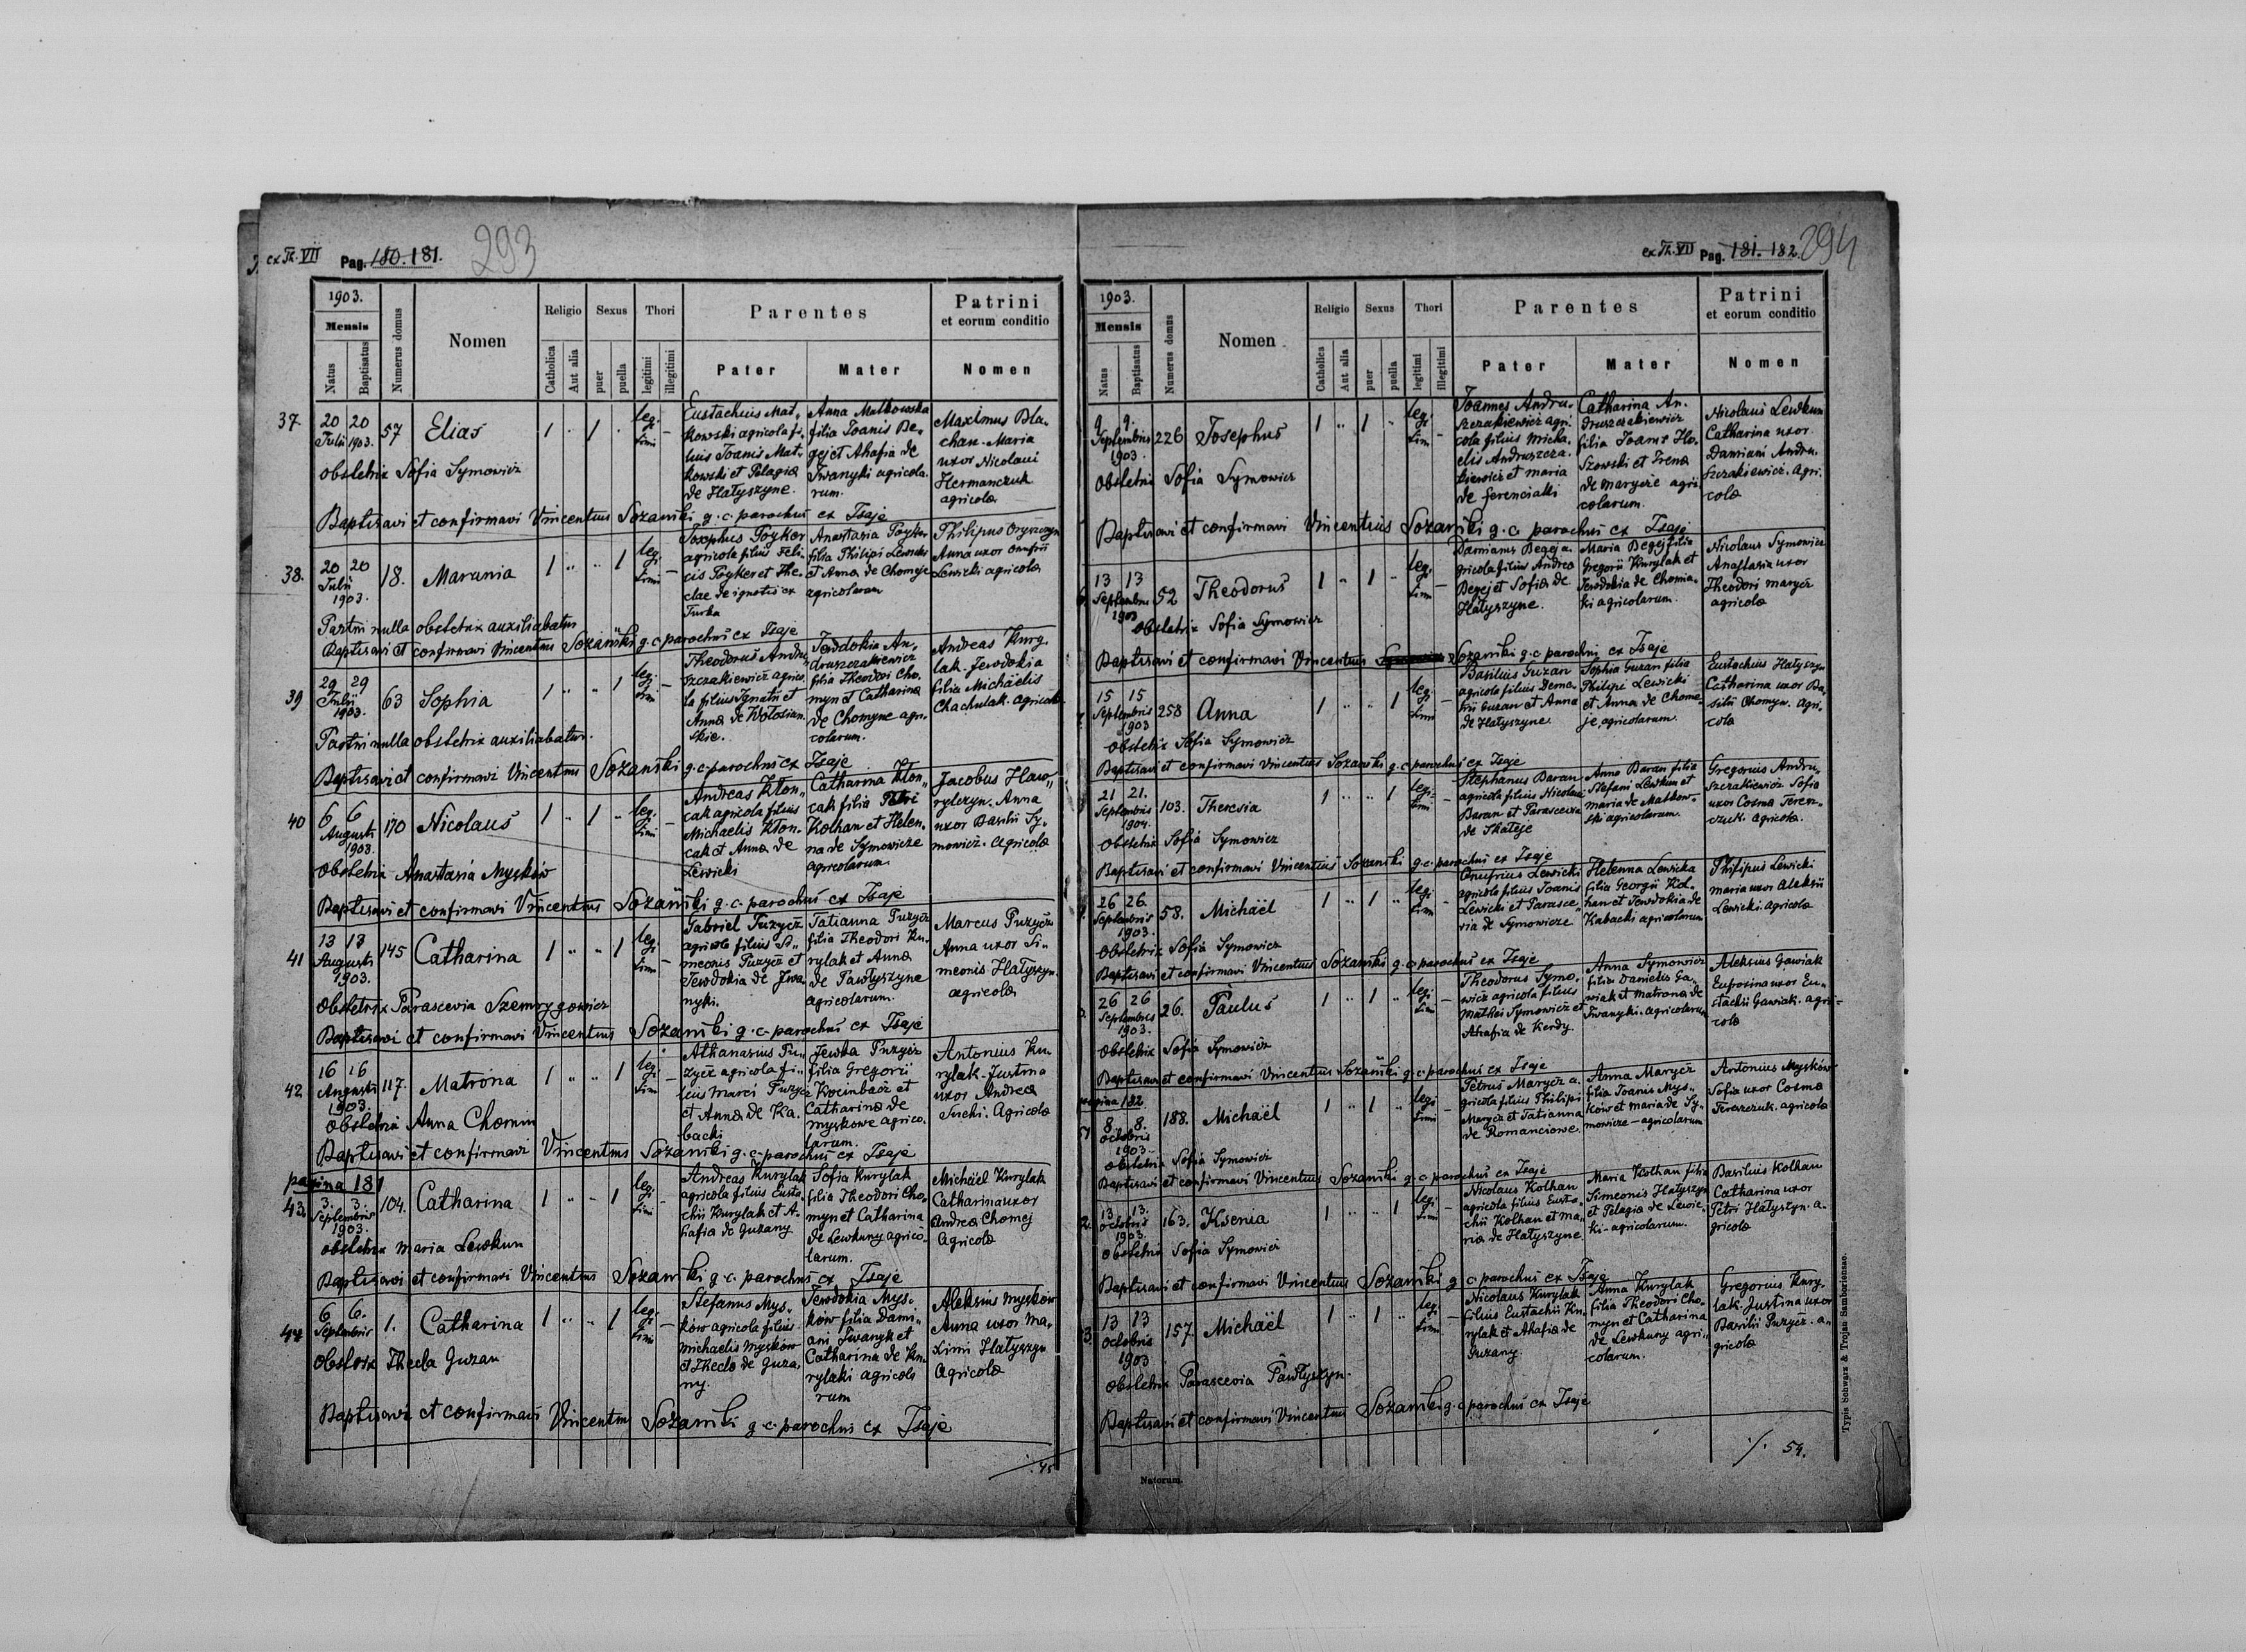 ex Th. VII Pag. 180. 181.
293
1903.
Mensis
Natus
Baptisatus
Numerus domus
Nomen
Religio
Catholica
Aut alia
Sexus
puer
puella
Thori
legitimi
illegitimi
Parentes
Pater
Mater
Patrini
et eorum conditio
Nomen
37.
20 20
Julii 1903.
57
Elias
1 " 1 "
legi
timi
Eustachius Mat-
kowski agricola fi-
lius Joanis Mat-
kowski et Pelagia
de Hatyszyne.
Anna Matkowska
filia Joanis Be-
gej et Ahafia de
Iwanyki agricola-
rum.
Maximus Bla-
chan. Maria
uxor Nicolaui
Hermanczuk
agricola
Obstetrix Sofia Symowicz
Baptisavi et confirmavi Vincentius Sozański g. c. parochus ex Isaje
38.
20 20
Julii
1903.
18.
Marunia
1 " " 1
legi
timi
Josephus Poyker
agricola filius Feli-
cis Poyker et The-
clae de ignotis ex
Turka
Anastasia Poyker
filia Philipi Lewicki
et Anna de Chomyje
agricolarum
Philipus
Anna uxor Onufrii
Lewicki agricola
Partui nulla obstetrix auxiliabatur
Baptisavi et confirmavi Vincentius Sozański g. c. parochus ex Isaje
39
29 29
Julii
1903.
63
Sophia
1 " " 1
legi
timi
Theodorus Andru-
szczakiewicz agrico-
la filius Ignatii et
Anna de Wołosian-
skie.
Jewdokia An-
druszczakiewicz
filia Theodori Cho-
myn et Catharina
de Chomyne agri-
colarum.
Andreas Kury-
lak. Jewdokia
filia Michaelis
Chachulak. agricola
Partui nulla obstetrix auxiliabatur.
Baptisavi et confirmavi Vincentius Sozański g. c. parochus ex Isaje
40
6 6
Augusti
1903.
170
Nicolaus
1 " 1 "
legi
timi
Andreas Klon-
cak agricola filius
Michaelis Klon-
cak et Anna de
Lewicki
Catharina Klon-
cak filia Petri
Kolhan et Helen-
na de Symowicze
agricolarum
Jacobus Haw-
rylczyn. Anna
uxor Basilii Sy-
mowicz. Agricola
Obstetrix Anastasia Myskow
Baptisavi et confirmavi Vincentius Sozański g. c. parochus ex Isaje
41
13 13
Augusti
1903.
145
Catharina
1 " " 1
legi
timi
Gabriel Puzycz
agricola filius Si-
meonis Puzycz et
Jewdokia de Iwa-
nyki.
Tatianna Puzycz
filia Theodori Ku-
rylak et Anna
de Pawłyszyne
agricolarum.
Marcus Puzycz
Anna uxor Si-
meonis Hatyszyn.
agricola
Obstetrix Parascevia Szemrygowicz
Baptisavi et confirmavi Vincentius Sozański g. c. parochus ex Isaje
42.
16 16
Augusti
1903.
117.
Matrona
1 " " 1
legi
timi
Athanasius Pu-
zycz agricola fi-
lius Marci Puzycz
et Anna de Ka-
backi
Jewka Puzycz
filia Gregorii
Kocimbacz et
Catharina de
Myskowe agrico-
larum.
Antonius Ku-
rylak. Justina
uxor Andrea
Suchi. Agricola
Obstetrix Anna Chomin
Baptisavi et confirmavi Vincentius Sozański g. c. parochus ex Isaje
pagina 181
43.
3. 3.
Septembris
1903.
104.
Catharina
1 " " 1
legi
timi
Andreas Kurylak
agricola filius Eusta-
chii Kurylak et A-
hafia de Guzany
Sofia Kurylak
filia Theodori Cho-
myn et Catharina
de Lewkuny agrico-
larum.
Michael Kurylak
Catharina uxor
Andrea Chomej
Agricola
Obstetrix Maria Lewkun
Baptisavi et confirmavi Vincentius Sozański g. c. parochus ex Isaje
44
6 6.
Septembris
1.
Catharina
1 " " 1
legi
timi
Stefanus Mys-
ków agricola filius
Michaelis Mysków
et Thecla de Guza-
ny.
Jewdokia Mys-
ków filia Dami-
ani Iwanyk et
Catharina de Ku-
rylaki agricola
rum
Aleksius Myskow
Anna uxor Ma-
ximi Hatyszyn
Agricola
Obstetrix Thecla Guzan
Baptisavi et confirmavi Vincentius Sozański g. c. parochus ex Isaje
45
ex Th. VII Pag. 181. 182.
294
1903.
Mensis
Natus
Baptisatus
Numerus domus
Nomen
Religio
Catholica
Aut alia
Sexus
puer
puella
Thori
legitimi
illegitimi
Parentes
Pater
Mater
Patrini
et eorum conditio
Nomen
9 9.
Septembris
1903.
226
Josephus
1 " 1 "
legi
tim
Joannes Andru-
szczakiewicz agri-
cola filius Micha-
elis Andruszcza-
kiewicz et Maria
de Ferenciaki
Catharina An-
druszczakiewicz
filia Joanis Ho-
szowski et Irena
de Marycze agri
colarum.
Nicolaus Lewkun
Catharina uxor
Damiani Andru-
szczakiewicz. Agri-
cola
Obstetrix Sofia Symowicz
Baptisavi et confirmavi Vincentius Sozański g. c. parochus ex Isaje
13 13
Septembris
1903
52
Theodorus
1 " 1 "
legi
timi
Damianus Begej a-
gricola filius Andrea
Begej et Sofia de
Hatyszyne.
Maria Begej filia
Gregorii Kurylak et
Jewdokia de Chomia-
ki agricolarum.
Nicolaus Symowicz
Anastasia uxor
Theodori Marycz
agricola
Obstetrix Sofia Symowicz
Baptisavi et confirmavi Vincentius Sozański g. c. parochus ex Isaje
15 15
Septembris
1903
258
Anna
1 " " 1
legi
timi
Basilius Guzan
agricola filius Deme-
trii Guzan et Anna
de Hatyszyne.
Sophia Guzan filia
Philipi Lewicki
et Anna de Chome-
je, agricolarum.
Eustachius Hatyszyn
Catharina uxor Ba-
silii Chomyn. Agri-
cola
Obstetrix Sofia Symowicz
Baptisavi et confirmavi Vincentius Sozański g. c. parochus ex Isaje
21 21.
Septembris
1904.
103.
Theresia
1 " " 1
legi-
timi
Stephanus Baran
agricola filius Nicolai
Baran et Parascevia
de Skateje
Anna Baran filia
Stefani Lewkun et
Maria de Matkow-
ski agricolarum.
Gregorius Andru-
szczakiewicz Sofia
uxor Cosma Teresz-
czuk. agricola.
Obstetrix Sofia Symowicz
Baptisavi et confirmavi Vincentius Sozański g. c. parochus ex Isaje
26 26.
Septembris
1903.
58.
Michaël
1 " 1 "
legi
timi
Onufrius Lewicki
agricola filius Joanis
Lewicki et Parasce-
via de Symowicze
Helenna Lewicka
filia Georgii Kol-
han et Jewdokia de
Kabacki agricolarum
Philipus Lewicki
Maria uxor Aleksii
Lewicki. agricola
Obstetrix Sofia Symowicz
Baptisavi et confirmavi Vincentius Sozański g. c. parochus ex Isaje
26 26
Septembris
1903.
26.
Paulus
1 " 1 "
legi
timi
Theodorus Symo-
wicz agricola filius
Mathei Symowicz et
Ahafia de Kerdy
Anna Symowicz
filia Danielis Ga-
wiak et Matrona de
Iwanyki. agricolarum
Aleksius Gawiak
Eufrosina uxor Eu-
stachii Gawiak. agri-
cola
Obstetrix Sofia Symowicz
Baptisavi et confirmavi Vincentius Sozański g. c. parochus ex Isaje
pagina 182
51
8. 8.
Octobris
1903.
188.
Michaël
1 " 1 "
legi
timi
Petrus Marycz a-
gricola filius Philipi
Marycz et Tatianna
de Romanciowe.
Anna Marycz
filia Joanis Mys-
ków et Maria de Sy-
mowicze - agricolarum
Antonius Myskow
Sofia uxor Cosma
Tereszczuk. agricola
Obstetrix Sofia Symowicz
Baptisavi et confirmavi Vincentius Sozański g. c. parochus ex Isaje
2.
13. 13.
Octobris
1903.
163.
Ksenia
1 " " 1
legi
timi
Nicolaus Kolhan
agricola filius Eusta-
chii Kolhan et Ma-
ria de Hatyszyne
Maria Kolhan filia
Simeonis Hatyszyn
et Pelagia de Lewic-
ki - agricolarum.
Basilius Kolhan
Catharina uxor
Petri Hatyszyn. a-
gricola
Obstetrix Sofia Symowicz
Baptisavi et confirmavi Vincentius Sozański g. c. parochus ex Isaje
3.
13 13
Octobris
1903
157.
Michaël
1 " 1 "
legi
timi
Nicolaus Kurylak
filius Eustachii Ku-
rylak et Ahafia de
Guzany.
Anna Kurylak
filia Theodori Cho-
myn et Catharina
de Lewkuny agri-
colarum.
Gregorius Kury-
lak. Justina uxor
Basilii Puzycz. a-
gricola
Obstetrix Parascevia Pawłyszyn.
Baptisavi et confirmavi Vincentius Sozański g. c. parochus ex Isaje
54.
Natorum.
Typis Schwarz & Trojan Samboriensae.